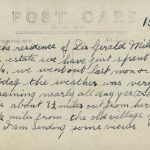 POST CARD
15
the residence of Sir Gerald
estate we have just spent
we went out last noon
today the weather was very
raining nearly all day yesterday
about 1½ miles out from
½ mile from the old village
I am sending some views